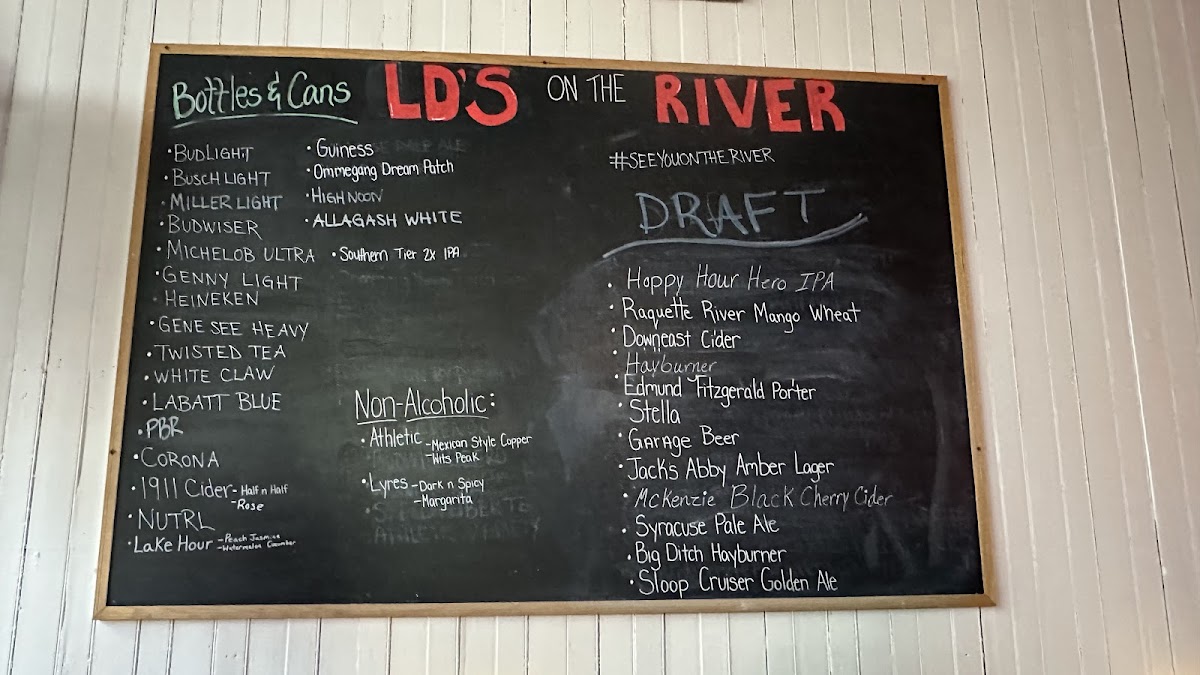 Bottles & Cans
LD'S ON THE RIVER
#SEEYOUONTHERIVER
• BUDLIGHT
• BUSCH LIGHT
• MILLER LIGHT
• BUDWISER
• MICHELOB ULTRA
• GENNY LIGHT
• HEINEKEN
• GENESEE HEAVY
• TWISTED TEA
• WHITE CLAW
• LABATT BLUE
• PBR
• CORONA
• 1911 Cider - Half n Half
- Rose
• NUTRL
• Lake Hour - Peach Jasmine
- Watermelon Cucumber
• Guiness
• Ommegang Dream Patch
• HIGH NOON
• ALLAGASH WHITE
• Southern Tier 2X IPA
Non-Alcoholic:
• Athletic - Mexican Style Copper
- Wits Peak
• Lyres - Dark n Spicy
- Margarita
DRAFT
• Hoppy Hour Hero IPA
• Raquette River Mango Wheat
• Downeast Cider
• Hayburner
• Edmund Fitzgerald Porter
• Stella
• Garage Beer
• Jacks Abby Amber Lager
• McKenzie Black Cherry Cider
• Syracuse Pale Ale
• Big Ditch Hayburner
• Sloop Cruiser Golden Ale